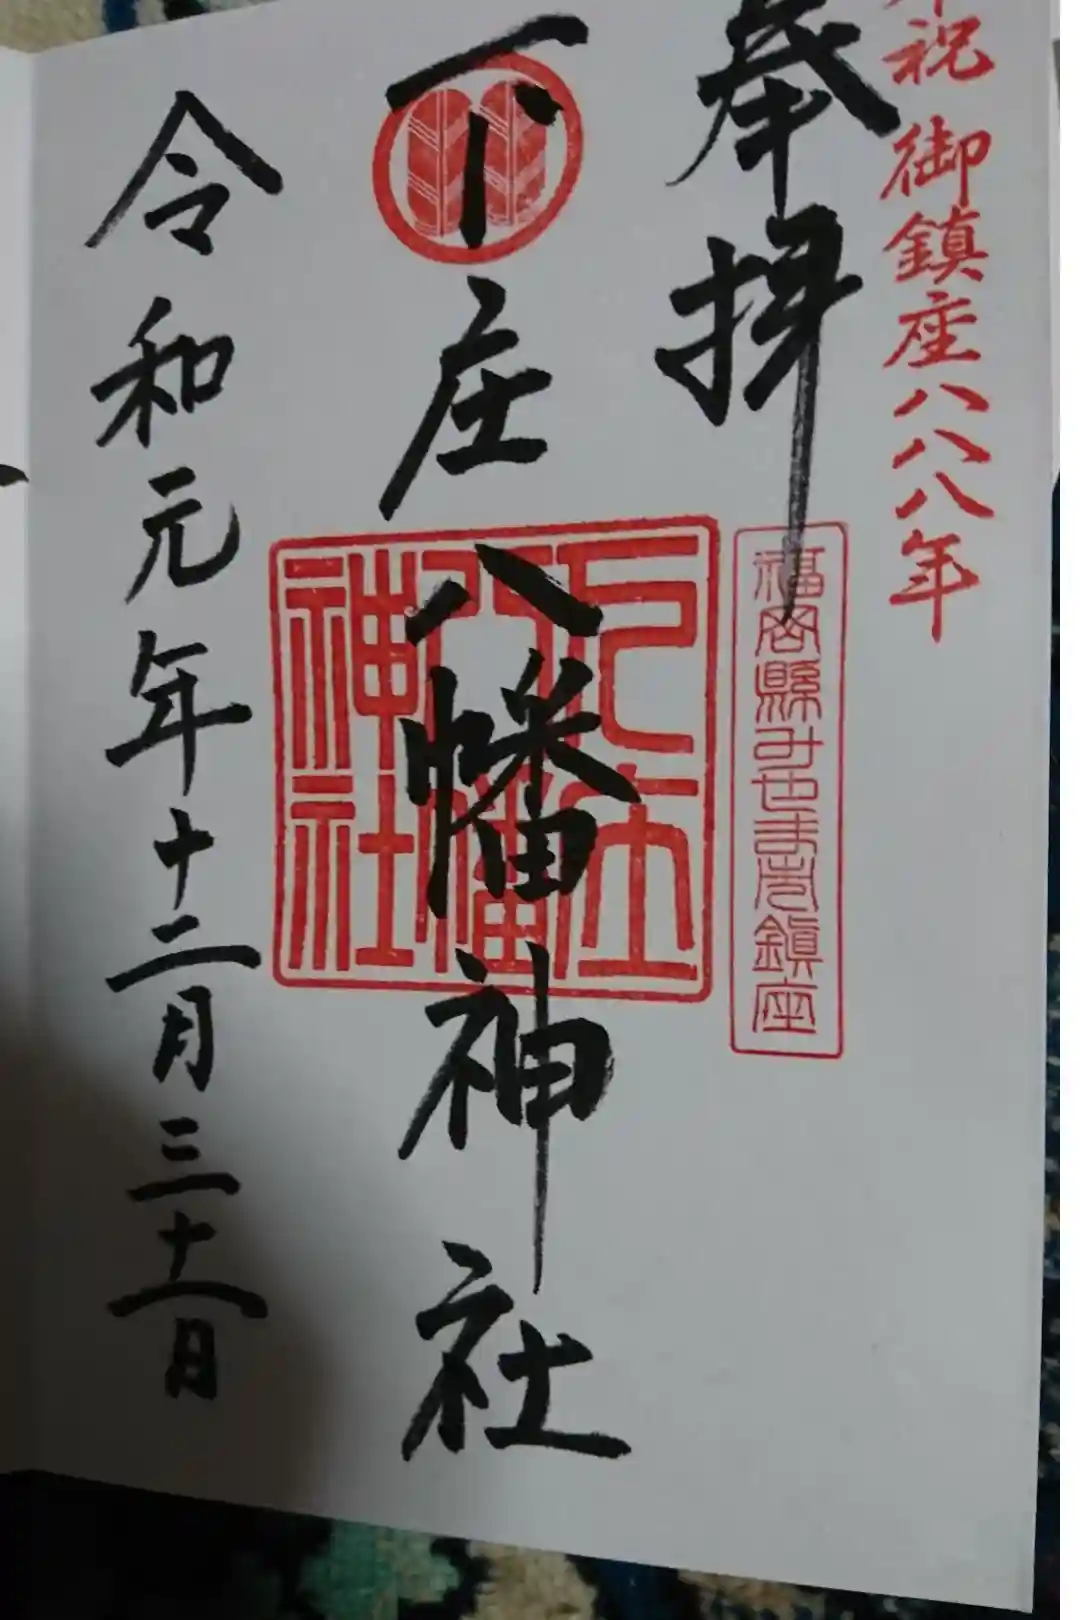 奉祝 御鎮座八八八年
奉拝
福岡縣みやま市鎮座
下庄八幡神社
下庄八幡神社
令和元年十二月三十一日